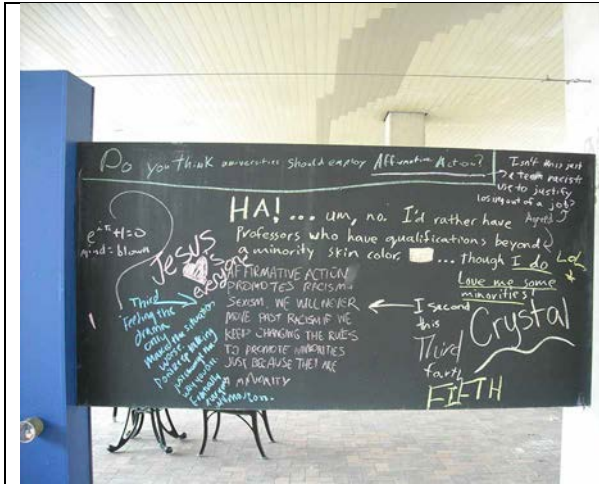 Do you think universities should employ Affirmative Action?
Isn't this just
a term racists
use to justify
losing out of a job?
Agreed
HA! ... um, no. I'd rather have
Professors who have qualifications beyond
a minority skin color. ... though I do
Love me some
minorities!
LOL
e^iπ+1=0
mind = blown
Jesus
♥s
everyone
AFFIRMATIVE ACTION
PROMOTES RACISM &
SEXISM. WE WILL NEVER
MOVE PAST RACISM IF WE
KEEP CHANGING THE RULES
TO PROMOTE MINORITIES
JUST BECAUSE THEY ARE
A MINORITY
I second
this
Third
forth
FIFTH
Crystal
Third
Feeling the
drama
only
makes the situation
worse.
Don't keep talking
way you on.
Eventually